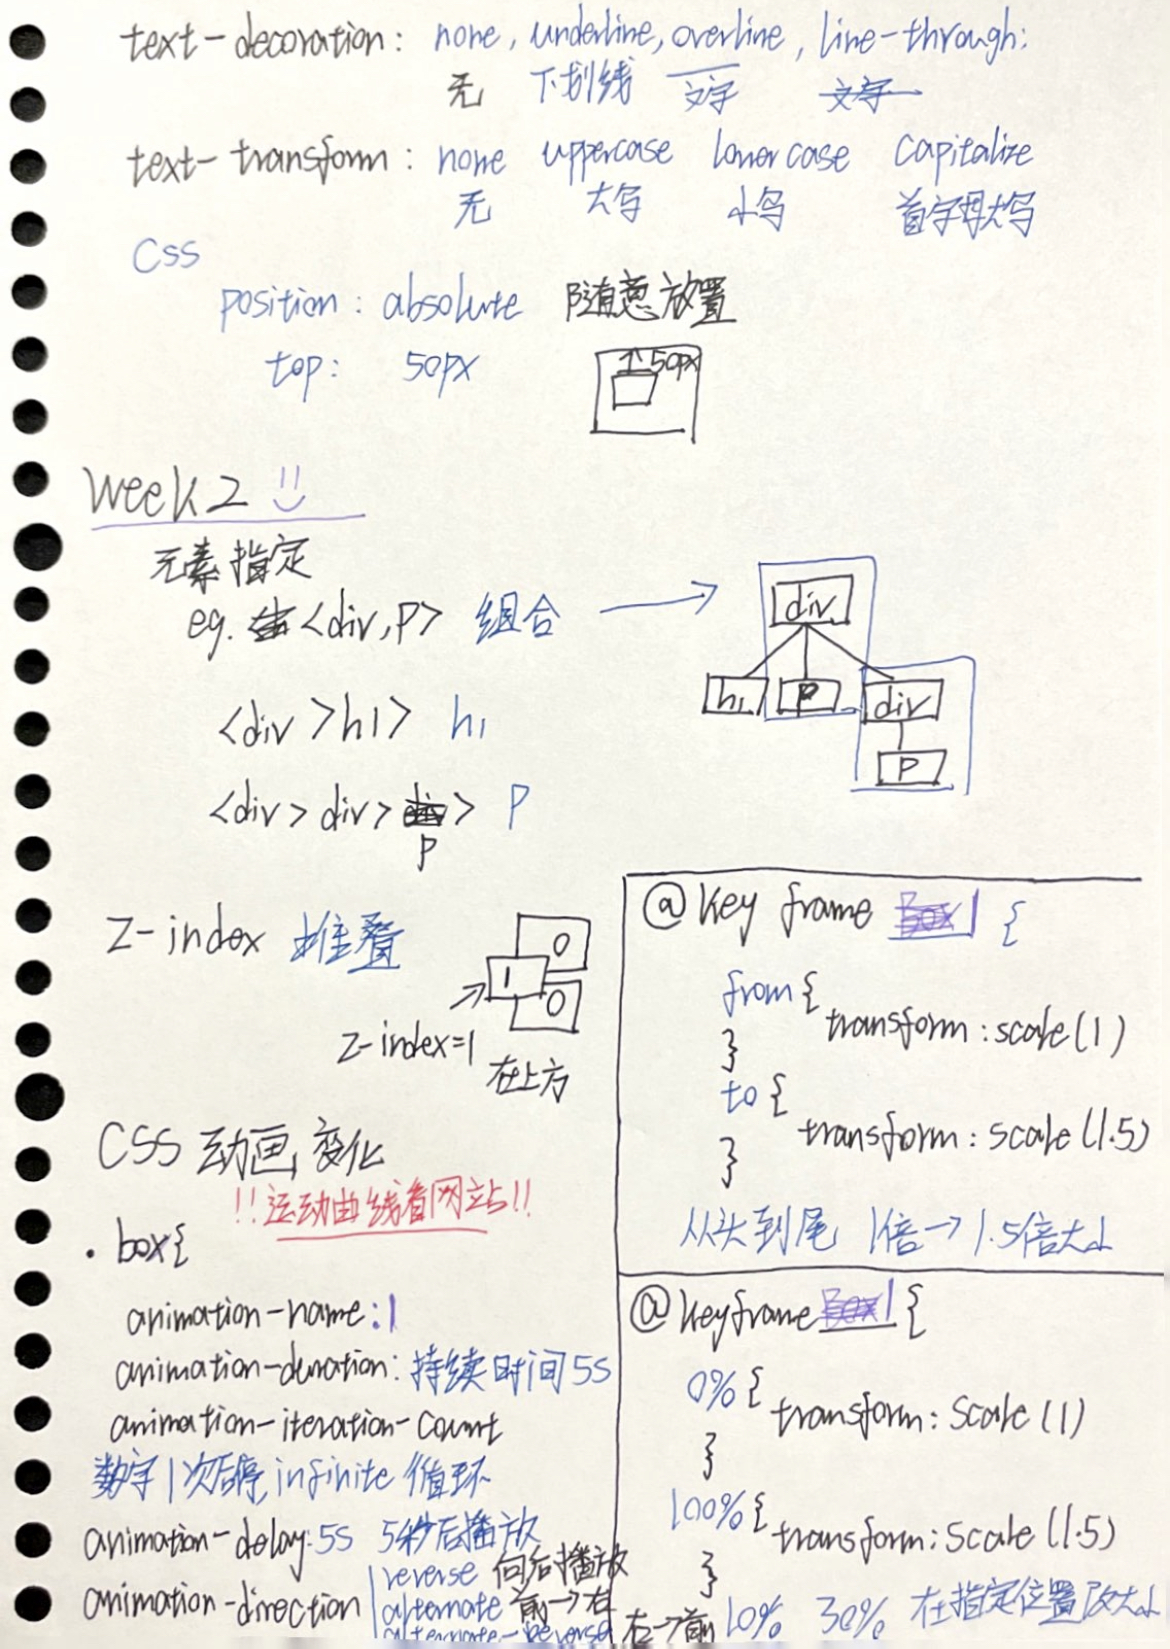 text-decoration: none, underline, overline, line-through:
无 下划线 文字 文字
text-transform: none uppercase lowercase capitalize
无 大写 小写 首字母大写
CSS
position: absolute 随意放置
top: 50px
50px
Week 2
元素指定
eg. <div,p> 组合
div
h1 P div
P
<div >h1> h1
<div> div> p> P
z-index 堆叠
0
1
0
z-index=1
在上方
CSS 动画,变化
!!运动曲线看网站!!
. box{
animation-name:1
animation-duration: 持续时间5S
animation-iteration-count
数字1次后停, infinite 循环
animation-delay:5S 5秒后播放
animation-direction
reverse 向后播放
alternate 前→右
alternate-reverse 右→前
@key frame Box1 {
from {
transform: scale(1)
}
to {
transform: scale(1.5)
}
从头到尾 1倍→1.5倍大小
@keyframe Box1 {
0% {
transform: Scale (1)
}
100% {
transform: Scale (1.5)
}
10% 30% 在指定位置改大小